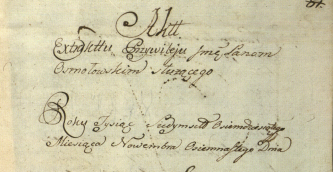 Akt
Extraktu Przywileju Jmć Panom
Osmołowskim służącego
Roku Tysiąc Siedymset Osiemdziesiątego
Miesiąca Nowembra Osiemnastego Dnia